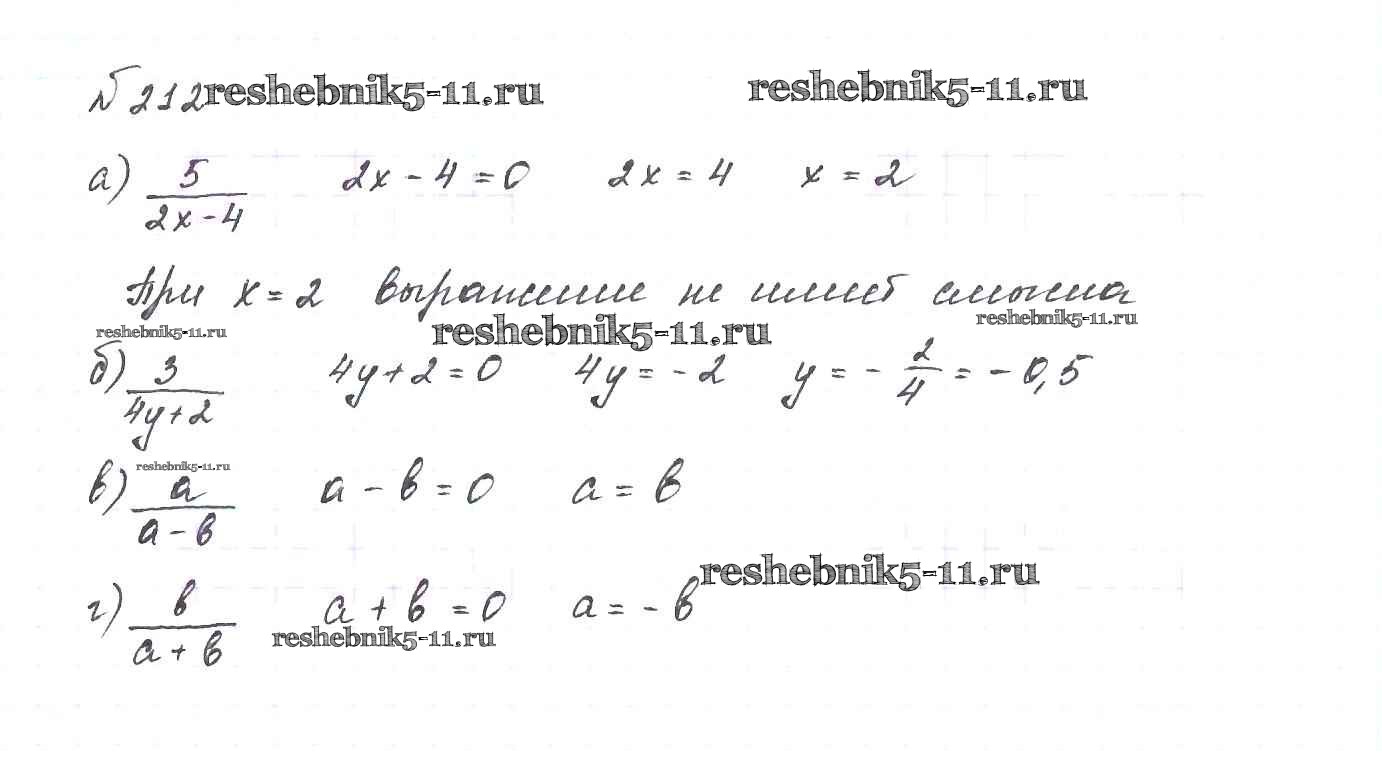 № 212 reshebnik5-11.ru reshebnik5-11.ru
а) 5/(2x-4) 2x - 4 = 0 2x = 4 x = 2
При x = 2 выражение не имеет смысла
reshebnik5-11.ru reshebnik5-11.ru reshebnik5-11.ru
б) 3/(4y+2) 4y + 2 = 0 4y = - 2 y = - 2/4 = - 0,5
reshebnik5-11.ru
в) a/(a-в) a - в = 0 a = в
reshebnik5-11.ru
г) в/(a+в) a + в = 0 a = - в
reshebnik5-11.ru